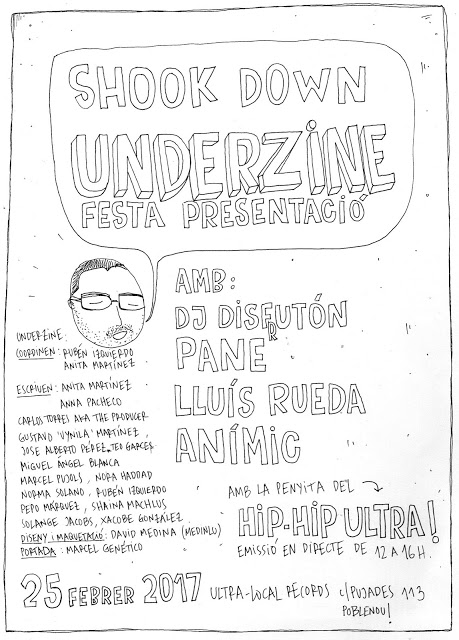 SHOOK DOWN
UNDERZINE
FESTA PRESENTACIÓ
AMB:
DJ DISFRUTÓN
PANE
LLUÍS RUEDA
ANÍMIC
UNDERZINE:
COORDINEN: RUBÉN IZQUIERDO
ANITA MARTÍNEZ
ESCRIUEN: ANITA MARTÍNEZ
ANNA PACHECO
CARLOS TORRES AKA THE PRODUCER
GUSTAVO "VYNILA" MARTÍNEZ,
JOSE ALBERTO PÉREZ, TEO GARCÉS
MIGUEL ÁNGEL BLANCA
MARCEL PUJOLS, NORA HADDAD
NORMA SOLANO, RUBÉN IZQUIERDO
PEPO MÁRQUEZ, SHAINA MACHLUS
SOLANGE JACOBS, XACOBE GONZÁLEZ
DISENY I MAQUETACIÓ: DAVID MEDINA (MEDINLU)
PORTADA: MARCEL GENÉTICO
AMB LA PENYITA DEL
HIP-HIP ULTRA!
EMISSIÓ EN DIRECTE DE 12 A 16H.
25 FEBRER 2017 ULTRA-LOCAL RECORDS C/PUJADES 113
POBLENOU!